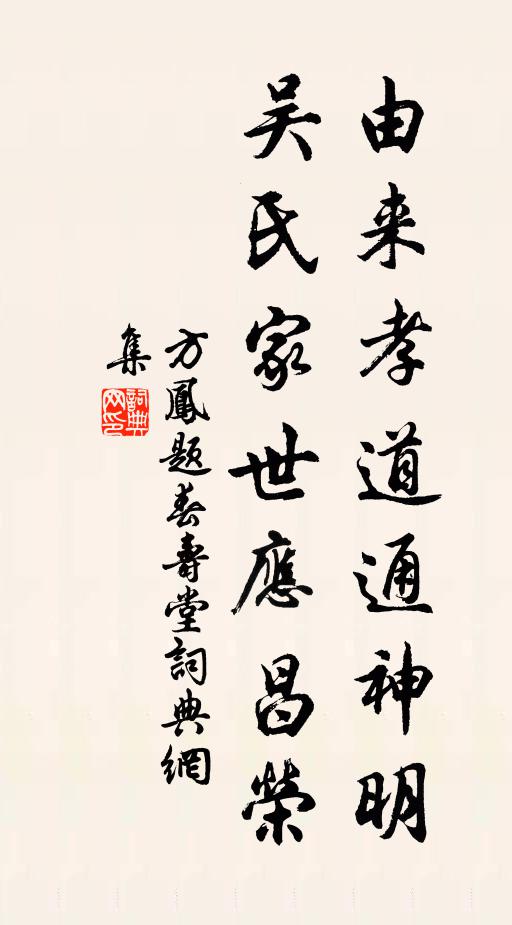 由来孝道通神明
吳氏家世應昌榮
方鳳題春壽堂詞典網
集
詞典网印